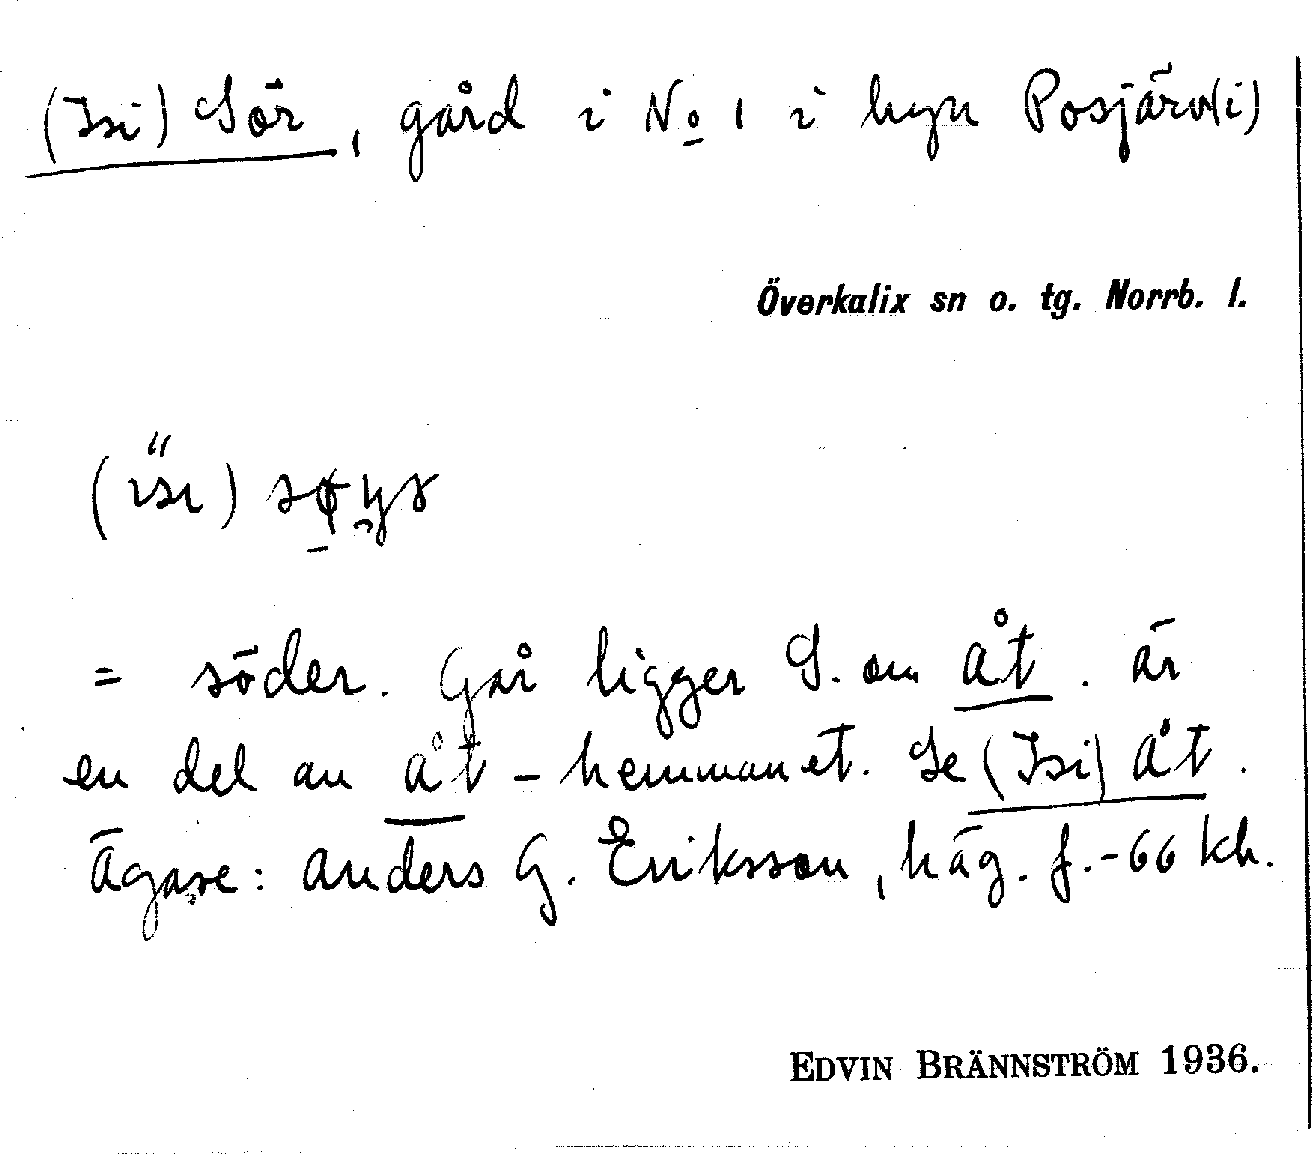 (Isi) Sör, gård i No 1 i byn Posjärv(i)
Överkalix sn o. tg. Norrb. l.
(isi)
= söder. Går ligger S. om åt. är
en del av åt-hemmanet. Se (Isi) åt.
Ägare: Anders G. Eriksson, häg. f. -66 kh.
EDVIN BRÄNNSTRÖM 1936.